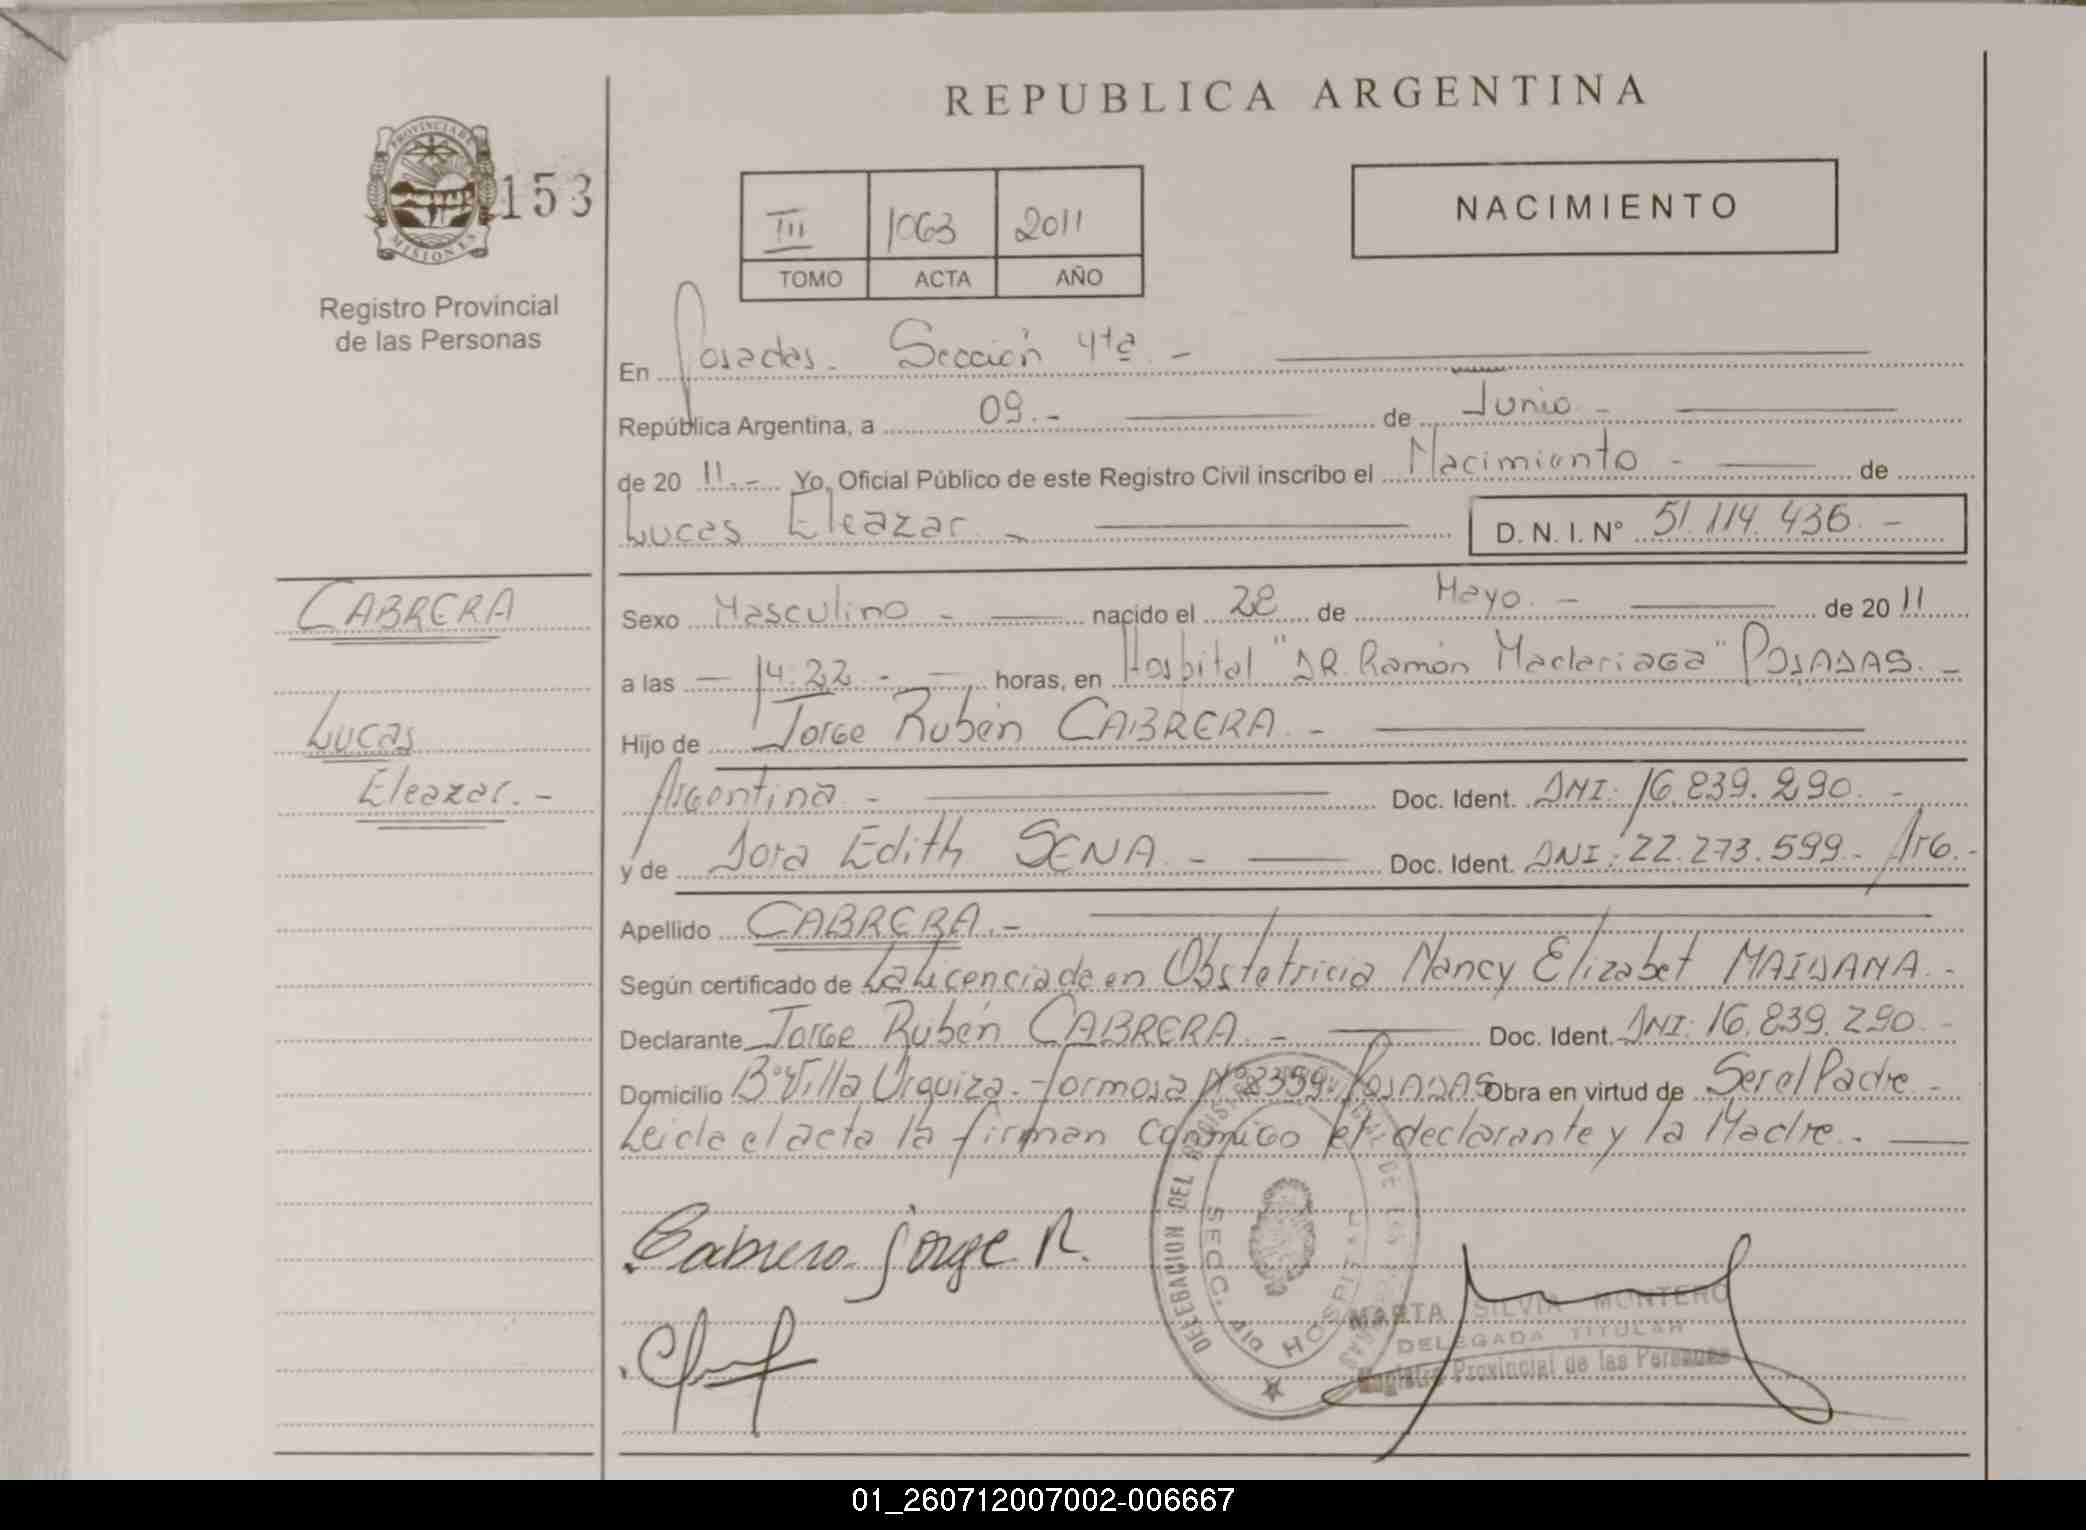 REPUBLICA ARGENTINA
PROVINCIA DE
MISIONES
153
III 1063 2011
TOMO ACTA AÑO
NACIMIENTO
Registro Provincial
de las Personas
En Posadas. Sección 4ta. -
República Argentina, a 09. - de Junio -
de 20 11. - Yo, Oficial Público de este Registro Civil inscribo el Nacimiento - de
Lucas Eleazar. - D. N. I. Nº 51.114.436. -
CABRERA
Lucas
Eleazar. -
Sexo Masculino - nacido el 28 de Mayo. - de 20 11
a las - 14:22 - horas, en Hospital "DR. Ramón Madariaga" POSADAS. -
Hijo de Jorge Rubén CABRERA. -
Argentina - Doc. Ident. DNI: 16.839.290. -
y de Dora Edith SENA. - Doc. Ident. DNI: 22.273.599. - Arg. -
Apellido CABRERA. -
Según certificado de La Licenciada en Obstetricia Nancy Elizabet MAIDANA. -
Declarante Jorge Rubén CABRERA. - Doc. Ident. DNI: 16.839.290. -
Domicilio Bº Villa Urquiza - Formosa Nº 2359. POSADAS Obra en virtud de Ser el Padre -
Leida el acta la firman conmigo el declarante y la Madre. -
Cabrera Jorge R.
DELEGACION DEL REGISTRO PROVINCIAL DE LAS PERSONAS
SECC. 4ta HOSPITAL
MARTA SILVIA MONTERO
DELEGADA TITULAR
Registro Provincial de las Personas
01_260712007002-006667